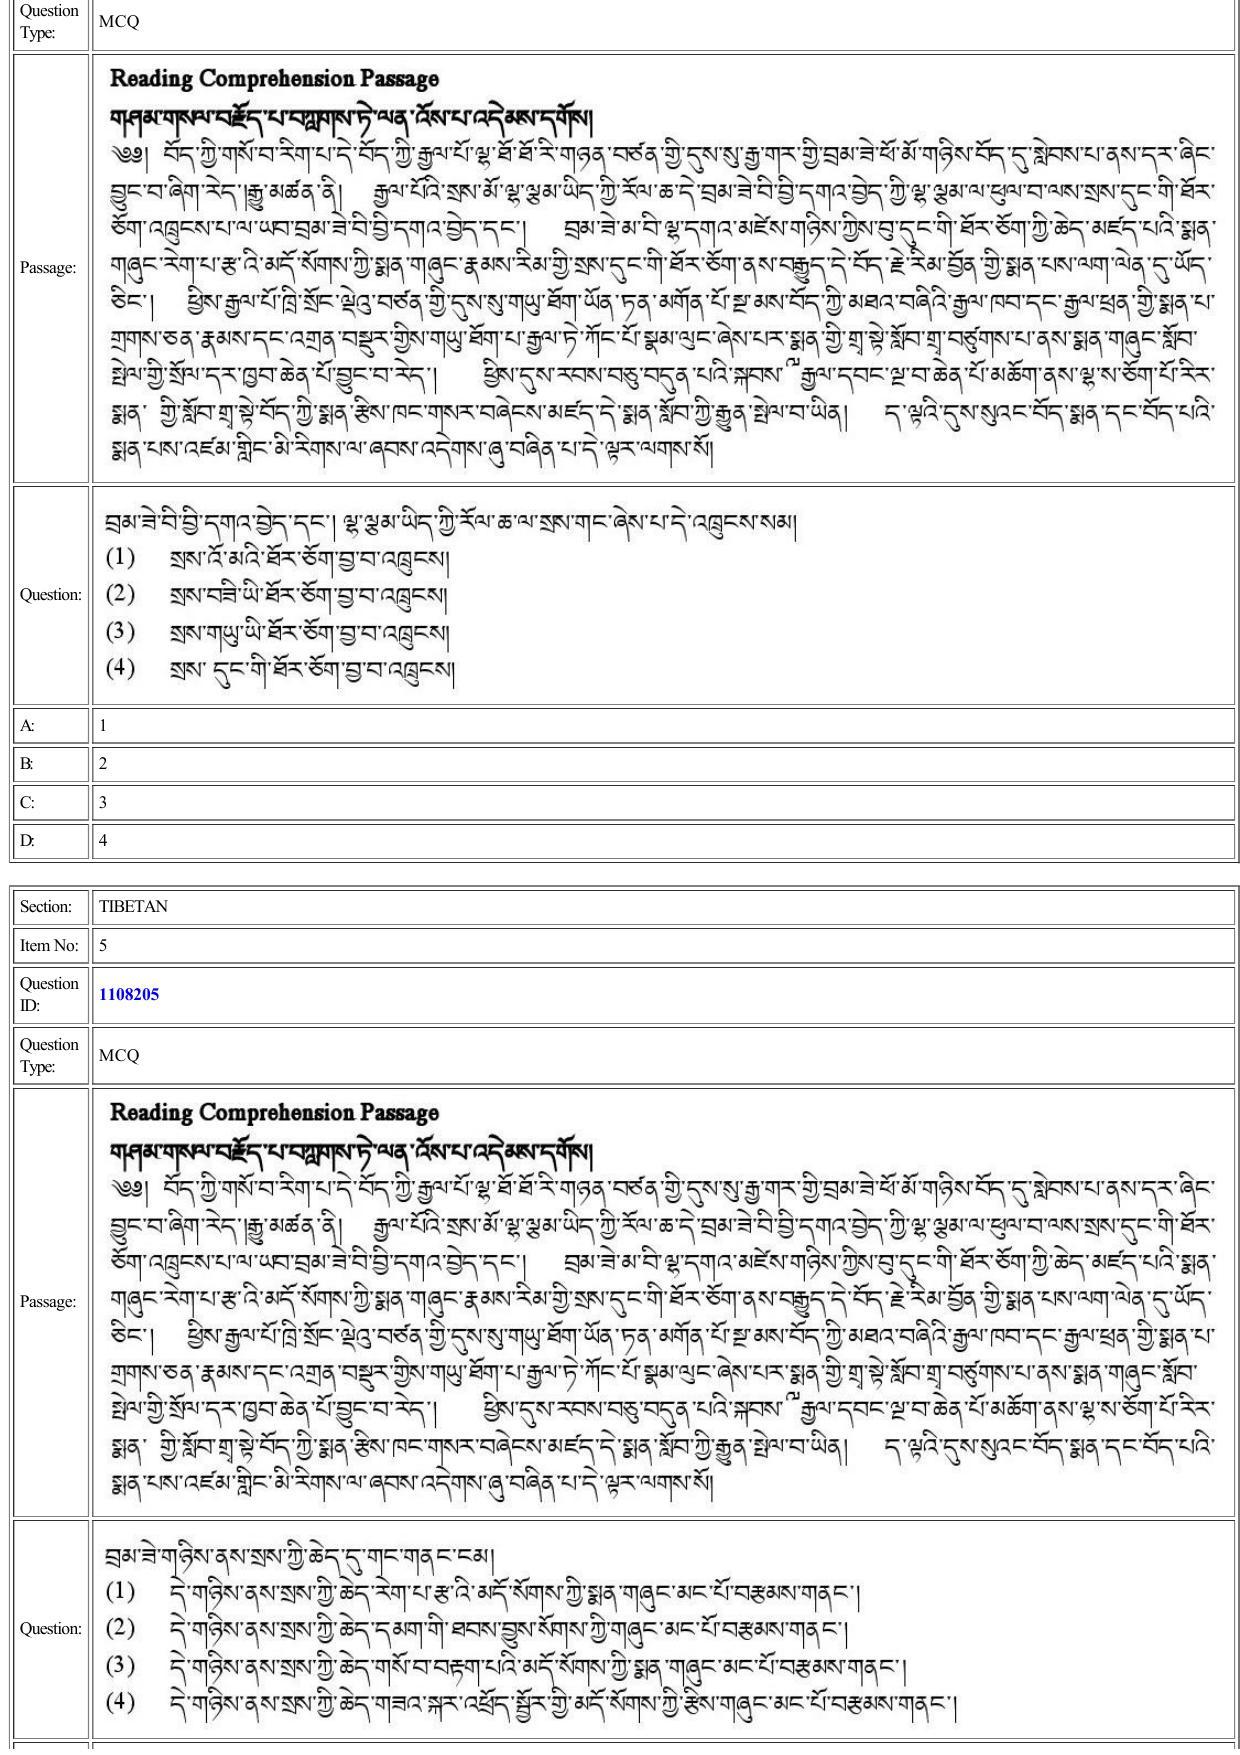 Question
Type:
MCQ
Passage:
Reading Comprehension Passage
གཤམ་གསལ་བརྗོད་པ་བཀླགས་ཏེ་ལན་འོས་པ་འདེམས་དགོས།
༄༅། བོད་ཀྱི་གསོ་བ་རིག་པ་དེ་བོད་ཀྱི་རྒྱལ་པོ་ལྷ་ཐོ་ཐོ་རི་གཉན་བཙན་གྱི་དུས་སུ་རྒྱ་གར་གྱི་བྲམ་ཟེ་ཕོ་མོ་གཉིས་བོད་དུ་སླེབས་པ་ནས་དར་ཞིང་
བྱུང་བ་ཞིག་རེད་།རྒྱུ་མཚན་ནི། རྒྱལ་པོའི་སྲས་མོ་ལྷ་ལྕམ་ཡིད་ཀྱི་རོལ་ཆ་དེ་བྲམ་ཟེ་བི་བྱི་དགའ་བྱེད་ཀྱི་ལྷ་ལྕམ་ལ་ཕུལ་བ་ལས་སྲས་དུང་གི་ཐོར་
ཅོག་འཁྲུངས་པ་ལ་ཡབ་བྲམ་ཟེ་བི་བྱི་དགའ་བྱེད་དང་། བྲམ་ཟེ་མ་བི་ལྷ་དགའ་མཛེས་གཉིས་ཀྱིས་བུ་དུང་གི་ཐོར་ཅོག་ཀྱི་ཆེད་མཛད་པའི་སྨན་
གཞུང་རེག་པ་རྩ་འི་མདོ་སོགས་ཀྱི་སྨན་གཞུང་རྣམས་རིམ་གྱི་སྲས་དུང་གི་ཐོར་ཅོག་ནས་བརྒྱུད་དེ་བོད་རྗེ་རིམ་བྱོན་གྱི་སྨན་པས་ལག་ལེན་དུ་ཡོད་
ཅིང་། ཕྱིས་རྒྱལ་པོ་ཁྲི་སྲོང་ལྡེའུ་བཙན་གྱི་དུས་སུ་གཡུ་ཐོག་ཡོན་ཏན་མགོན་པོ་སྔ་མས་བོད་ཀྱི་མཐའ་བཞིའི་རྒྱལ་ཁབ་དང་རྒྱལ་ཕྲན་གྱི་སྨན་པ་
གྲགས་ཅན་རྣམས་དང་འགྲན་བསྡུར་གྱིས་གཡུ་ཐོག་པ་རྒྱལ་ཏེ་ཀོང་པོ་སྨན་ལུང་ཞེས་པར་སྨན་གྱི་གྲྭ་སྡེ་སློབ་གྲྭ་བཙུགས་པ་ནས་སྨན་གཞུང་སློབ་
སྤེལ་གྱི་སྲོལ་དར་ཁྱབ་ཆེན་པོ་བྱུང་བ་རེད་། ཕྱིས་དུས་རབས་བཅུ་བདུན་པའི་སྐབས་ྋརྒྱལ་དབང་ལྔ་བ་ཆེན་པོ་མཆོག་ནས་ལྷ་ས་ཅོག་པོ་རིར་
སྨན་ གྱི་སློབ་གྲྭ་སྟེ་བོད་ཀྱི་སྨན་རྩིས་ཁང་གསར་བཞེངས་མཛད་དེ་སྨན་སློབ་ཀྱི་རྒྱུན་སྤེལ་བ་ཡིན། ད་ལྟའི་དུས་སུའང་བོད་སྨན་དང་བོད་པའི་
སྨན་པས་འཛམ་གླིང་མི་རིགས་ལ་ཞབས་འདེགས་ཞུ་བཞིན་པ་དེ་ལྟར་ལགས་སོ།
Question:
བྲམ་ཟེ་བི་བྱི་དགའ་བྱེད་དང་། ལྷ་ལྕམ་ཡིད་ཀྱི་རོལ་ཆ་ལ་སྲས་གང་ཞེས་པ་དེ་འཁྲུངས་སམ།
(1) སྲས་འོ་མའི་ཐོར་ཅོག་བྱ་བ་འཁྲུངས།
(2) སྲས་བཟི་ཡི་ཐོར་ཅོག་བྱ་བ་འཁྲུངས།
(3) སྲས་གཡུ་ཡི་ཐོར་ཅོག་བྱ་བ་འཁྲུངས།
(4) སྲས་ དུང་གི་ཐོར་ཅོག་བྱ་བ་འཁྲུངས།
A: 1
B: 2
C: 3
D: 4
Section: TIBETAN
Item No: 5
Question
ID:
1108205
Question
Type:
MCQ
Passage:
Reading Comprehension Passage
གཤམ་གསལ་བརྗོད་པ་བཀླགས་ཏེ་ལན་འོས་པ་འདེམས་དགོས།
༄༅། བོད་ཀྱི་གསོ་བ་རིག་པ་དེ་བོད་ཀྱི་རྒྱལ་པོ་ལྷ་ཐོ་ཐོ་རི་གཉན་བཙན་གྱི་དུས་སུ་རྒྱ་གར་གྱི་བྲམ་ཟེ་ཕོ་མོ་གཉིས་བོད་དུ་སླེབས་པ་ནས་དར་ཞིང་
བྱུང་བ་ཞིག་རེད་།རྒྱུ་མཚན་ནི། རྒྱལ་པོའི་སྲས་མོ་ལྷ་ལྕམ་ཡིད་ཀྱི་རོལ་ཆ་དེ་བྲམ་ཟེ་བི་བྱི་དགའ་བྱེད་ཀྱི་ལྷ་ལྕམ་ལ་ཕུལ་བ་ལས་སྲས་དུང་གི་ཐོར་
ཅོག་འཁྲུངས་པ་ལ་ཡབ་བྲམ་ཟེ་བི་བྱི་དགའ་བྱེད་དང་། བྲམ་ཟེ་མ་བི་ལྷ་དགའ་མཛེས་གཉིས་ཀྱིས་བུ་དུང་གི་ཐོར་ཅོག་ཀྱི་ཆེད་མཛད་པའི་སྨན་
གཞུང་རེག་པ་རྩ་འི་མདོ་སོགས་ཀྱི་སྨན་གཞུང་རྣམས་རིམ་གྱི་སྲས་དུང་གི་ཐོར་ཅོག་ནས་བརྒྱུད་དེ་བོད་རྗེ་རིམ་བྱོན་གྱི་སྨན་པས་ལག་ལེན་དུ་ཡོད་
ཅིང་། ཕྱིས་རྒྱལ་པོ་ཁྲི་སྲོང་ལྡེའུ་བཙན་གྱི་དུས་སུ་གཡུ་ཐོག་ཡོན་ཏན་མགོན་པོ་སྔ་མས་བོད་ཀྱི་མཐའ་བཞིའི་རྒྱལ་ཁབ་དང་རྒྱལ་ཕྲན་གྱི་སྨན་པ་
གྲགས་ཅན་རྣམས་དང་འགྲན་བསྡུར་གྱིས་གཡུ་ཐོག་པ་རྒྱལ་ཏེ་ཀོང་པོ་སྨན་ལུང་ཞེས་པར་སྨན་གྱི་གྲྭ་སྡེ་སློབ་གྲྭ་བཙུགས་པ་ནས་སྨན་གཞུང་སློབ་
སྤེལ་གྱི་སྲོལ་དར་ཁྱབ་ཆེན་པོ་བྱུང་བ་རེད་། ཕྱིས་དུས་རབས་བཅུ་བདུན་པའི་སྐབས་ྋརྒྱལ་དབང་ལྔ་བ་ཆེན་པོ་མཆོག་ནས་ལྷ་ས་ཅོག་པོ་རིར་
སྨན་ གྱི་སློབ་གྲྭ་སྟེ་བོད་ཀྱི་སྨན་རྩིས་ཁང་གསར་བཞེངས་མཛད་དེ་སྨན་སློབ་ཀྱི་རྒྱུན་སྤེལ་བ་ཡིན། ད་ལྟའི་དུས་སུའང་བོད་སྨན་དང་བོད་པའི་
སྨན་པས་འཛམ་གླིང་མི་རིགས་ལ་ཞབས་འདེགས་ཞུ་བཞིན་པ་དེ་ལྟར་ལགས་སོ།
Question:
བྲམ་ཟེ་གཉིས་ནས་སྲས་ཀྱི་ཆེད་དུ་གང་གནང་ངམ།
(1) དེ་གཉིས་ནས་སྲས་ཀྱི་ཆེད་རེག་པ་རྩ་འི་མདོ་སོགས་ཀྱི་སྨན་གཞུང་མང་པོ་བརྩམས་གནང་།
(2) དེ་གཉིས་ནས་སྲས་ཀྱི་ཆེད་དམག་གི་ཐབས་བྱུས་སོགས་ཀྱི་གཞུང་མང་པོ་བརྩམས་གནང་།
(3) དེ་གཉིས་ནས་སྲས་ཀྱི་ཆེད་གསོ་བ་བརྟག་པའི་མདོ་སོགས་ཀྱི་སྨན་གཞུང་མང་པོ་བརྩམས་གནང་།
(4) དེ་གཉིས་ནས་སྲས་ཀྱི་ཆེད་གཟའ་སྐར་འཕྲོད་སྦྱོར་གྱི་མདོ་སོགས་ཀྱི་རྩིས་གཞུང་མང་པོ་བརྩམས་གནང་།